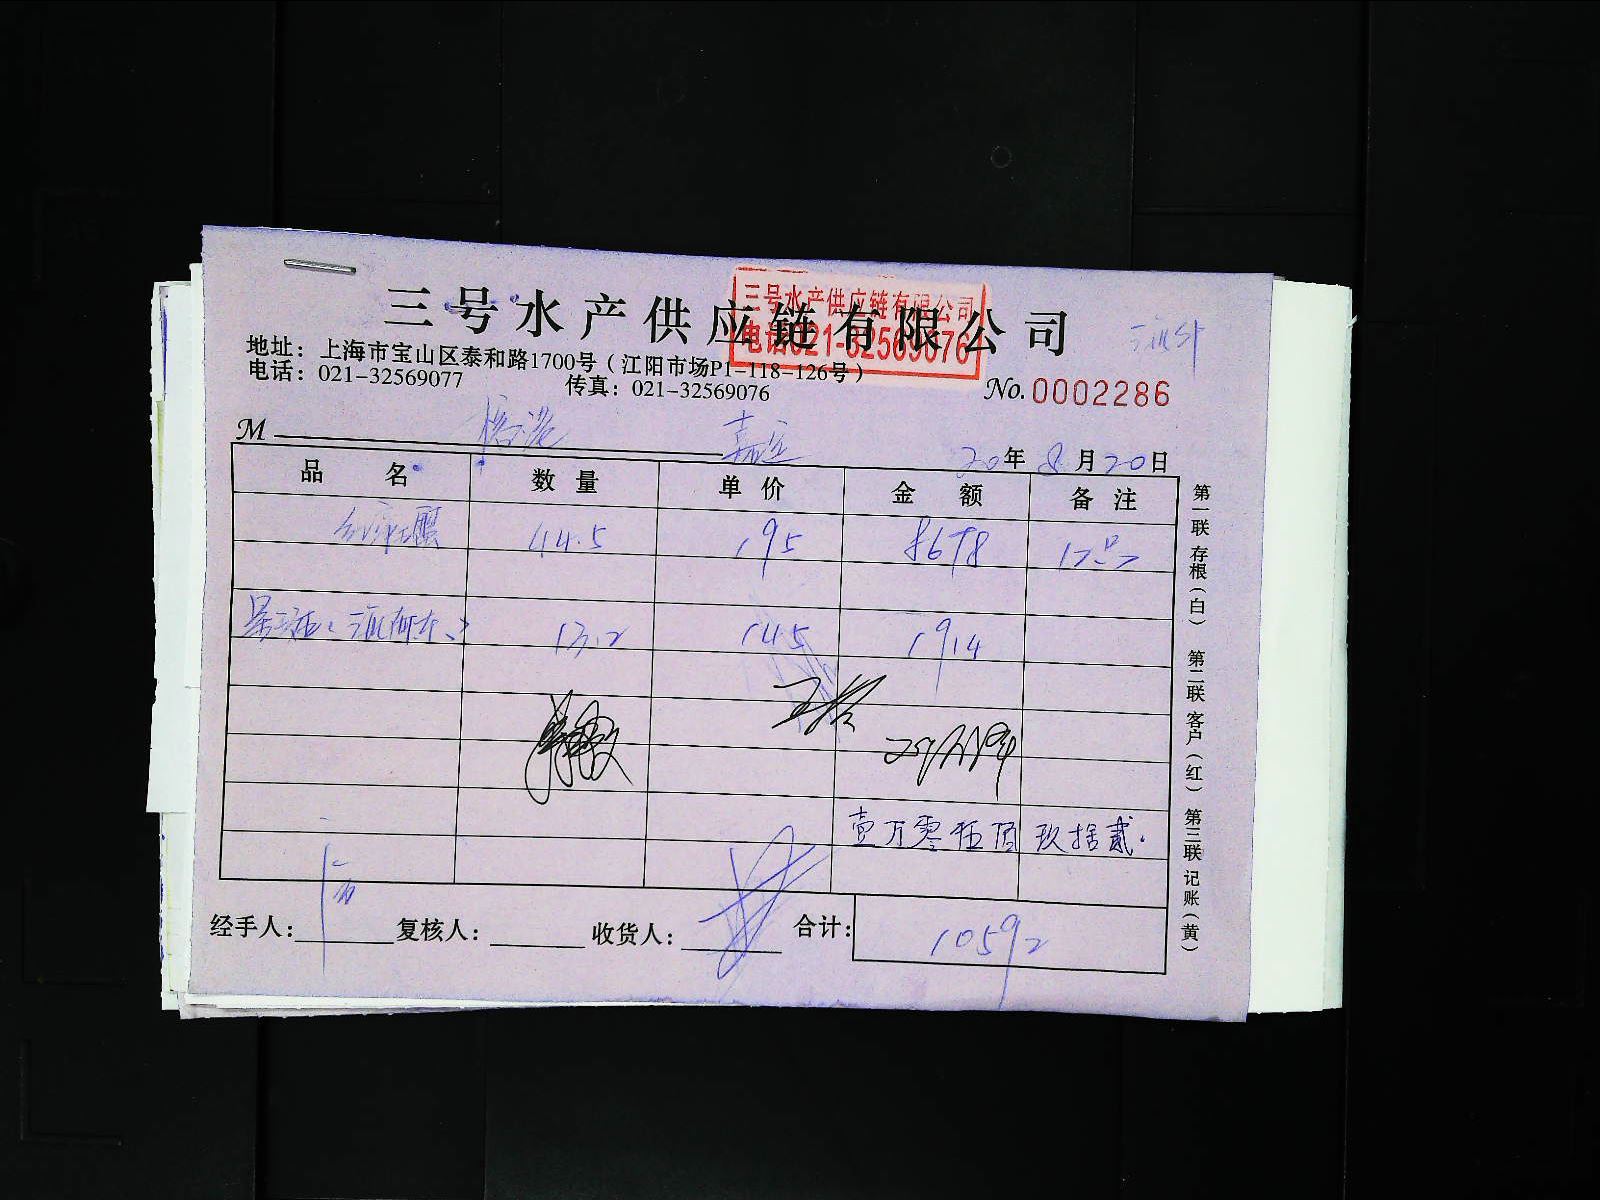 三号水产供应链有限公司
三号水产供应链有限公司
电话021-32569076
地址：上海市宝山区泰和路1700号（江阳市场P1-118-126号）
电话：021-32569077 传真：021-32569076
No.0002286
M 嘉定 20年8月20日
品名 数量 单价 金额 备注
44.5 195 8678
13.2 145 1914
壹万零伍佰玖拾贰.
经手人： 复核人： 收货人： 合计： 10592
第一联 存根（白） 第二联 客户（红） 第三联 记账（黄）